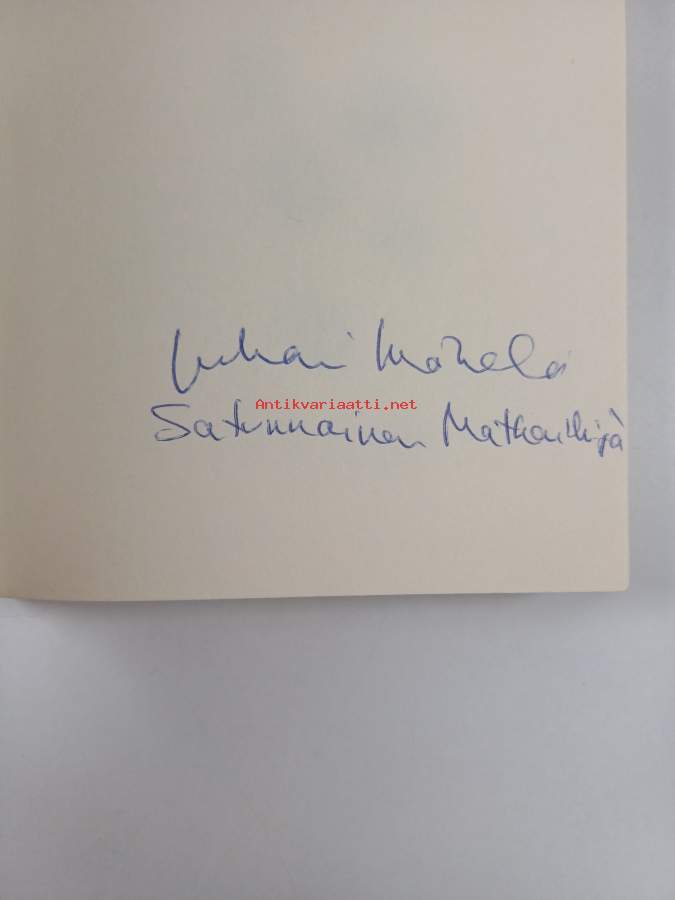 Juhani Mäkelä
Antikvariaatti.net
Satunnainen Matkailija